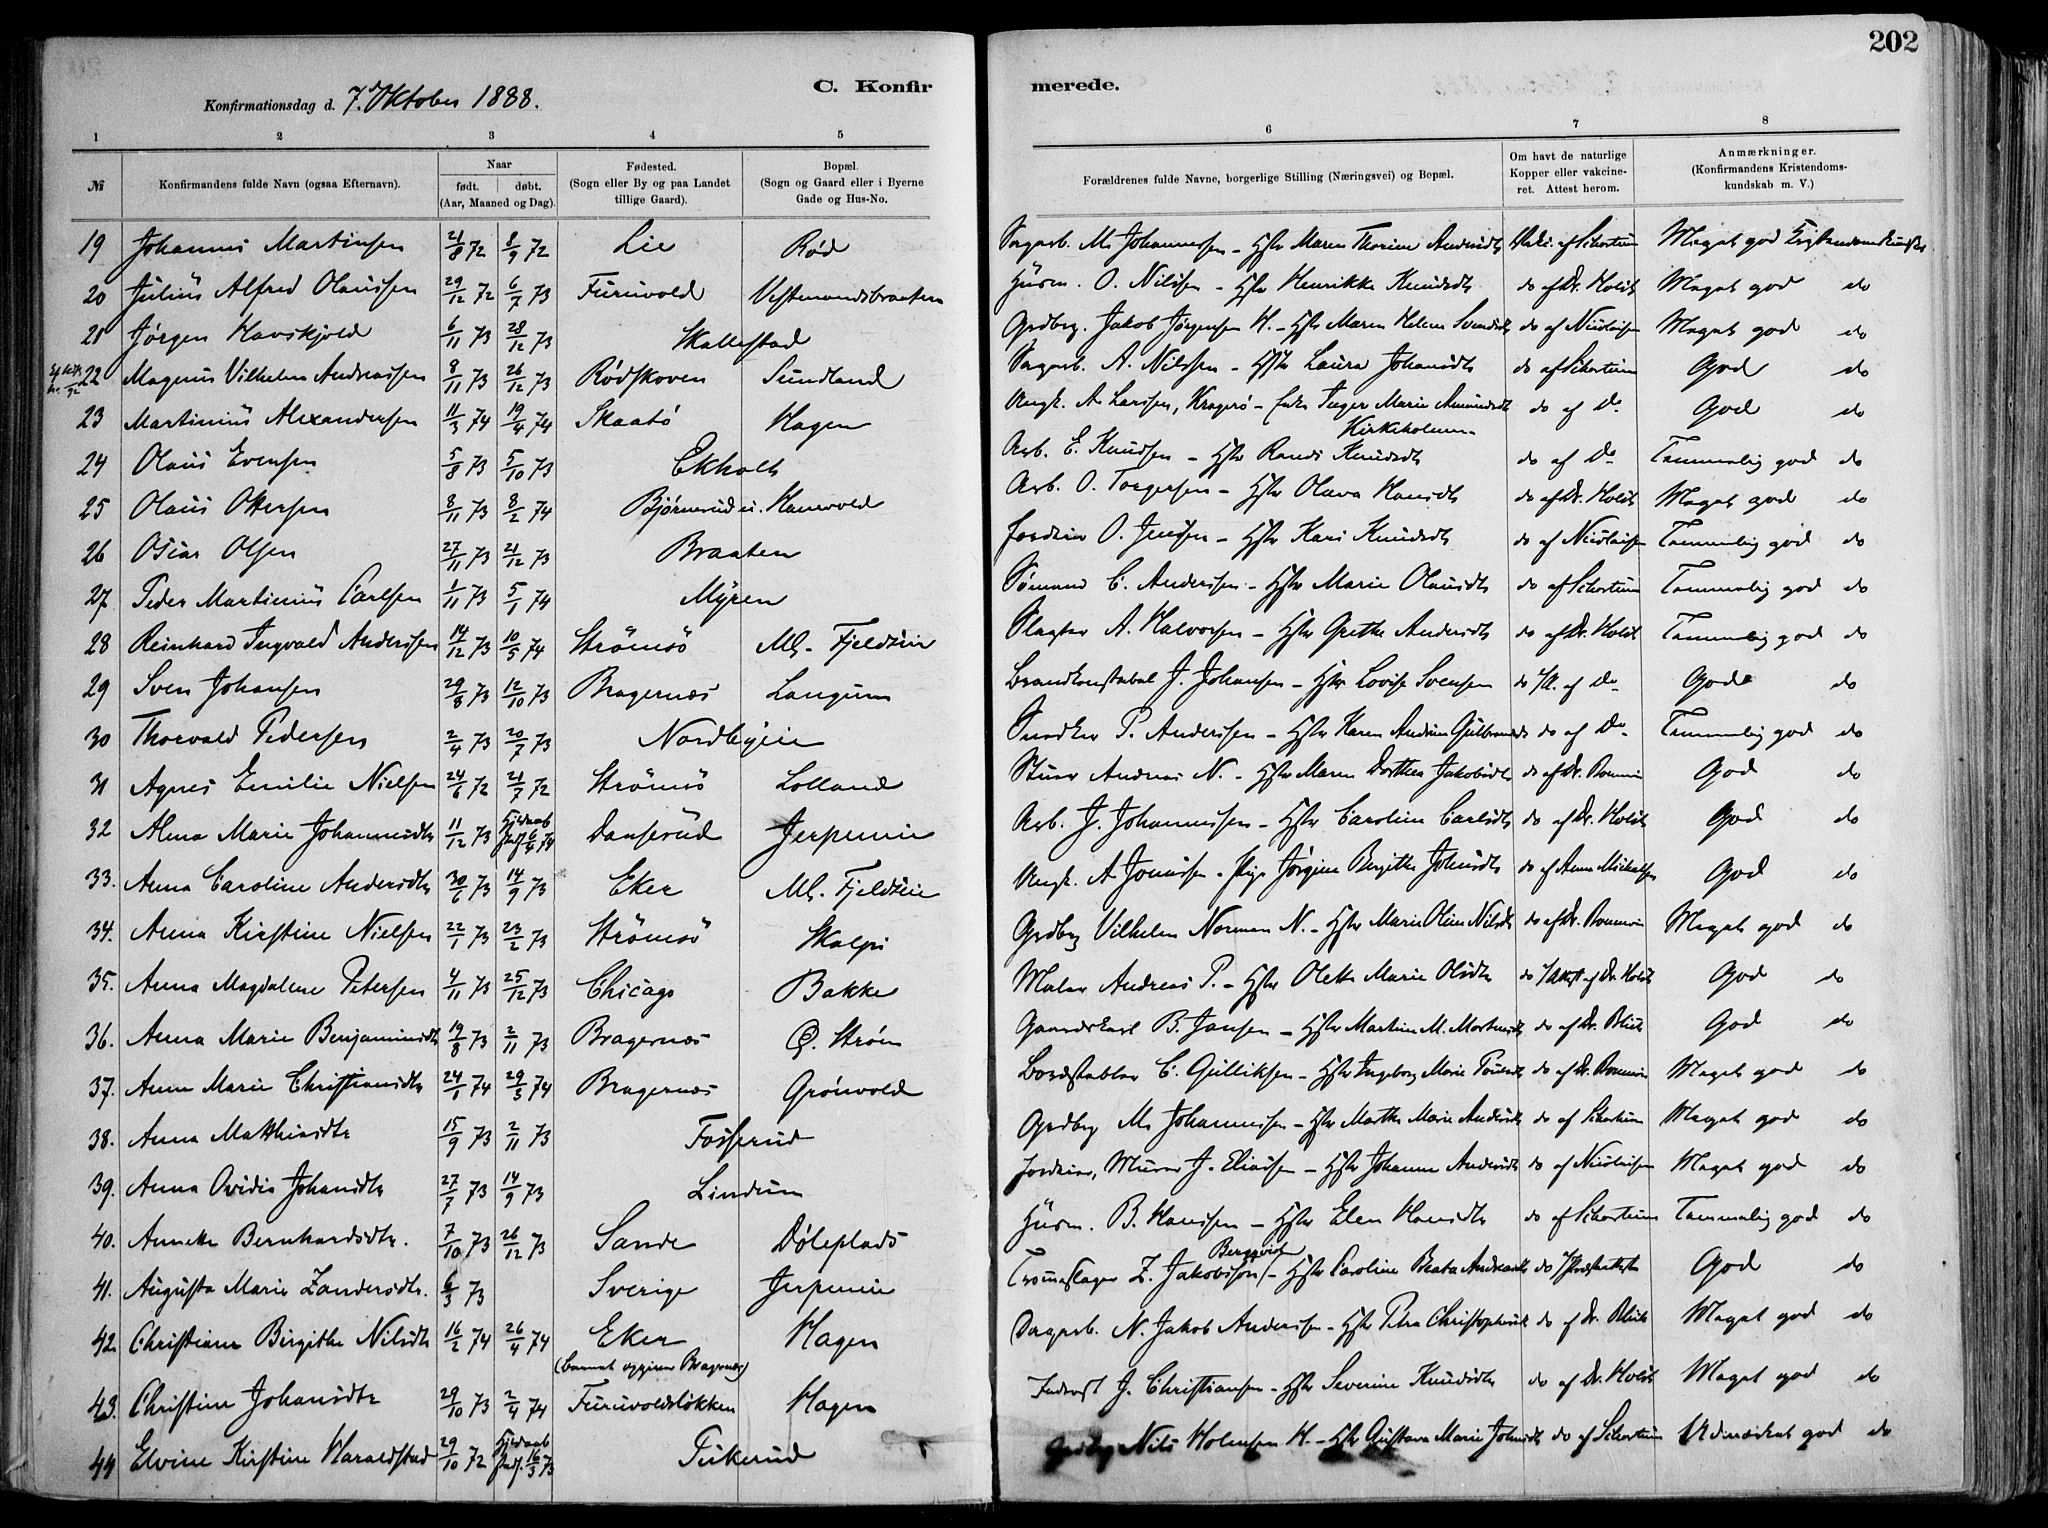 202
Konfirmationsdag d. 7de Oktober 1888.
C. Konfirmerede.
1 2 3 4 5 6 7 8
№ Konfirmandens fulde Navn (ogsaa Efternavn). Naar født. døbt. (Aar, Maaned og Dag). Fødested. (Sogn eller By og paa Landet tillige Gaard). Bopæl. (Sogn og Gaard eller i Byerne Gade og Hus-No. Forældrenes fulde Navne, borgerlige Stilling (Næringsvei) og Bopæl. Om havt de naturlige Kopper eller vakcineret. Attest herom. Anmærkninger. (Konfirmandens Kristendomskundskab m. V.)
19 Johannes Martinsen 21/8 72 8/9 72 Lie Rød Sagarb. M. Johannessen - Hstr Maren Thorine Andersdtr Vakc. af Schortum Meget god Kristendomskundsk.
20 Julius Alfred Olaussen 29/12 72 6/7 73 Furuvold Vestmandsbraaten Husm. O. Nilssen - Hstr Henrikke Knudsdtr do af Dr. Holst Meget god do
21 Jørgen Havskjold 6/11 73 28/12 73 Skallestad Grdbrg. Jakob Jørgensen H. - Hstr Maren Helene Svendsdtr do af Nicolaisen Meget god do
22 Magnus Vilhelm Andreassen 8/11 73 26/12 73 Rødskoven Sundland Sagarb. A. Nilssen - Hstr Laura Johansdtr do af Schortum God do
23 Martinius Alexandersen 11/3 74 19/4 74 Skaatö Hagen Ungk. A. Larssen, Kragerø - Enke Inger Marie Amundsdtr do af Do God do
Kirkeholmen
24 Olaus Evensen 5/8 73 5/10 73 Ekholt Arb. E. Knudsen - Hstr Randi Knudsdtr do af Do Temmelig god do
25 Olaus Ottersen 8/11 73 8/2 74 Bjørnerud u. Hanevold Arb. O. Torgersen - Hstr Olava Hansdtr do af Dr. Holst Meget god do
26 Oscar Olsen 27/11 73 21/12 73 Braaten Jordeier O. Jensen - Hstr Kari Knudsdtr do af Nicolaisen Temmelig god do
27 Peder Martinius Carlsen 1/11 73 5/1 74 Myren Sømand C. Anderssen - Hstr Marie Olausdtr do af Schortum Temmelig god do
28 Reinhard Ingvald Anderssen 14/12 73 10/5 74 Strömsö Ml. Fjeldsün Slagter A. Halvorsen - Hstr Grethe Andersdtr do af Dr. Holst Temmelig god do
29 Sven Johansen 29/8 73 12/10 73 Bragernæs Langum Brandkonstabel J. Johansen - Hstr Lovise Svensen do /A. af Do God do
30 Thorvald Pedersen 2/4 73 20/7 73 Nordbyeie Snedker P. Anderssen - Hstr Karen Andrine Gulbrandsdtr do af Do Temmelig god do
31 Agnes Emilie Nielsen 24/6 72 21/7 72 Strömsö Lolland Stuer Andreas N. - Hstr Maren Dorthea Jakobsdtr do af Dr. God do
32 Alma Marie Johannesdtr 11/12 73 Hjdøb stadf. 6/4 74 Danserud Jerpenie Arb. J. Johannessen - Hstr Caroline Carlsdtr do af Dr. Holst God do
33. Anna Caroline Andersdtr 30/6 73 14/9 73 Eker Ml. Fjeldsün Ungk. A. - Pige Jørgine Birgithe Johnsdtr do af Anne Michelsen God do
34. Anna Kirstine Nielsen 22/1 73 23/2 73 Strömsö Skalpi Grdbrg Vilhelm Norman N. - Hstr Marie Oline Nilsdtr do af Dr. Meget god do
35. Anna Magdalene Petersen 4/11 73 25/12 73 Chicago Bakke Maler Andreas P. - Hstr Olette Marie Olsdtr do /Attest af Dr. Holst God do
36. Anna Marie Benjaminsdtr 19/8 73 2/11 73 Bragernæs G. Strøm Gaardskarl B. Jansen - Hstr Martine M. Mortensdtr do af Dr. God do
37. Anna Marie Christiansdtr 24/1 74 29/3 74 Bragernæs Grönvold Bordstabler C. Gulliksen - Hstr Ingeborg Marie Poulsdtr do af Dr. Meget god do
38. Anna Matthiasdtr 15/9 73 2/11 73 Fosserud Grdbrg M. Johannessen - Hstr Marthe Marie Andersdtr do af Schortum Meget god do
39. Anna Ovidia Johansdtr 27/7 73 14/9 73 Lindum Jordeier, Murer J. Eliassen - Hstr Johanne Andersdtr do af Nicolaisen Meget god do
40. Annette Bernhardsdtr. 7/10 73 26/12 73 Sande Döleplads Husm. B. Hansen - Hstr Elen Hansdtr do af Schortum Temmelig god do
Bergqvist
41. Augusta Marie Zandersdtr. 6/3 73 Sverige Jerpenie Z. Jakobsson - Hstr Caroline Beata Andreasdtr do /Præsteattest God do
42. Christiane Birgithe Nilsdtr 16/2 74 26/4 74 Eker Hagen Sagarb. N. Jakob Anderssen - Hstr Petra Christophersdtr do af Dr. Meget god do
(Barnet opgiver Bragernæs)
43. Christine Johansdtr 29/10 73 2/4 74 Furuvoldsløkken Hagen Inderst J. Christiansen - Hstr Severine Knudsdtr do af Dr. Holst Meget god do
44 Elvine Kirstine Haraldstad 29/10 72 Hjdøb stadf. 16/3 73 Tukerud Grdbrg Nils Holmsen H. - Hstr Gustava Marie Johnsdtr do af Schortum Udmærket god do